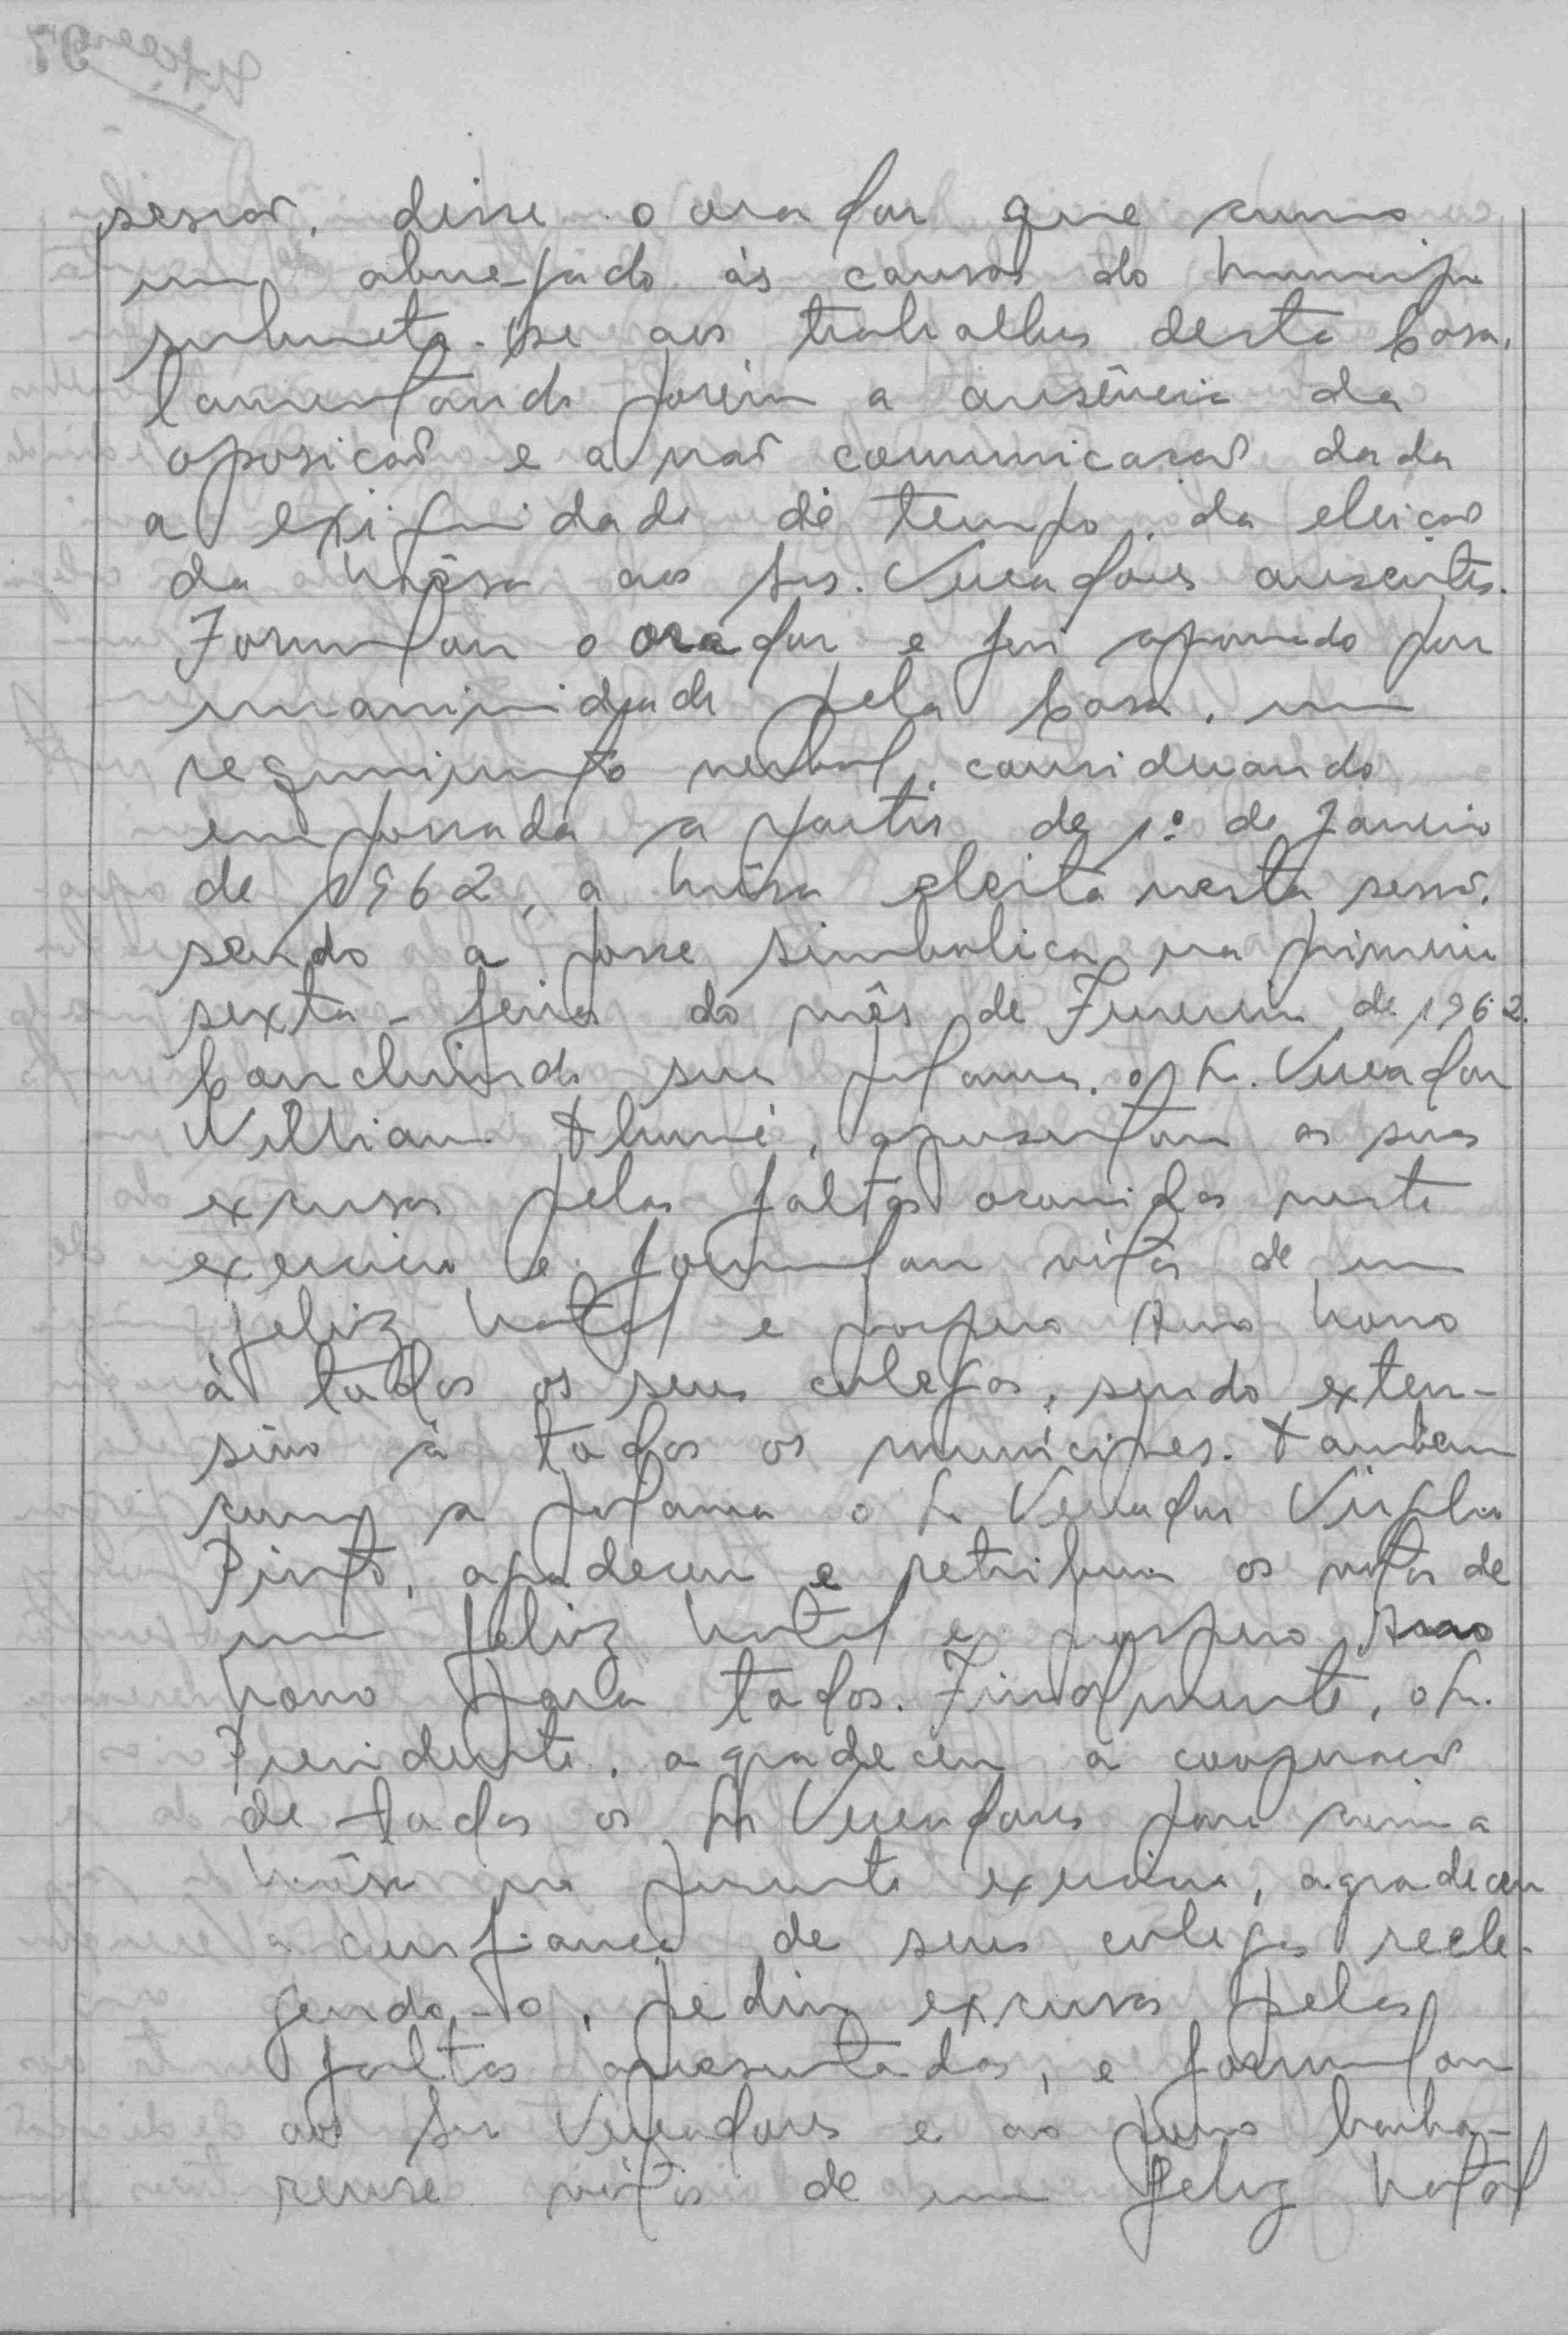 sessão, disse o orador que como
um abnegado ás causas do municipio
submete-se aos trabalhos desta Casa,
lamentando porém a ausência da
oposição e a não comunicação dada
a exiguidade de tempo, da eleição
da Mêsa aos Srs. Vereadores ausentes.
Formulou o orador e foi aprovado por
unanimidade pela Casa, um
requerimento verbal, considerando
empossada a partir de 1º de Janeiro
de 1962, a Mêsa eleita nesta sessão,
sendo a posse simbolica na primeira
sexta-feira do mês de Fevereiro de 1962.
Concluindo sua palavra, o Sr. Vereador
William Thomé, apresentou as suas
excusas pelas faltas ocorridas neste
exercicio e formulou vótos de um
feliz Natal e prospero Ano Novo
á todos os seus colegas, sendo exten-
sivo á todos os munícipes. Tambem
com a palavra o Sr Vereador Virgilio
Pinto, agradeceu e retribuiu os vótos de
um feliz Natal e prospero Ano
Novo para todos. Finalmente, o Sr.
Presidente, agradeceu a cooperação
de todos os Srs Vereadores para com a
Mêsa no presente exercicio, agradeceu
a confiança de seus colegas reele-
gendo-o, pediu excusas pelas
faltas apresentadas, e formulou
aos Srs Vereadores e ao povo
vótos de um feliz Natal